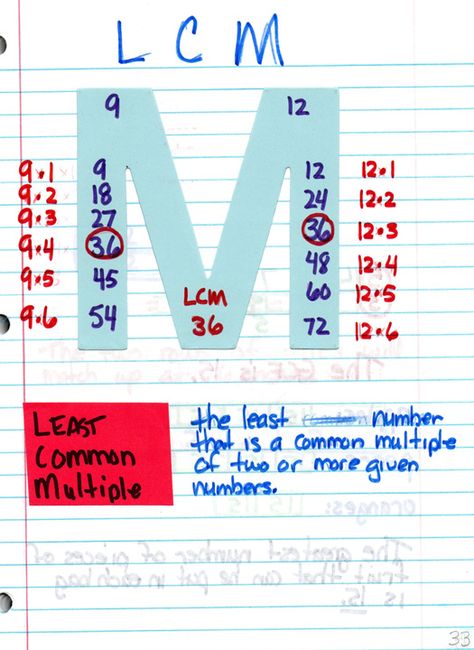 L C M
9 12
9·1 9 12 12·1
9·2 18 24 12·2
9·3 27 36 12·3
9·4 36 48 12·4
9·5 45 60 12·5
9·6 54 72 12·6
LCM
36
LEAST
Common
Multiple
the least number
that is a common multiple
of two or more given
numbers.
33